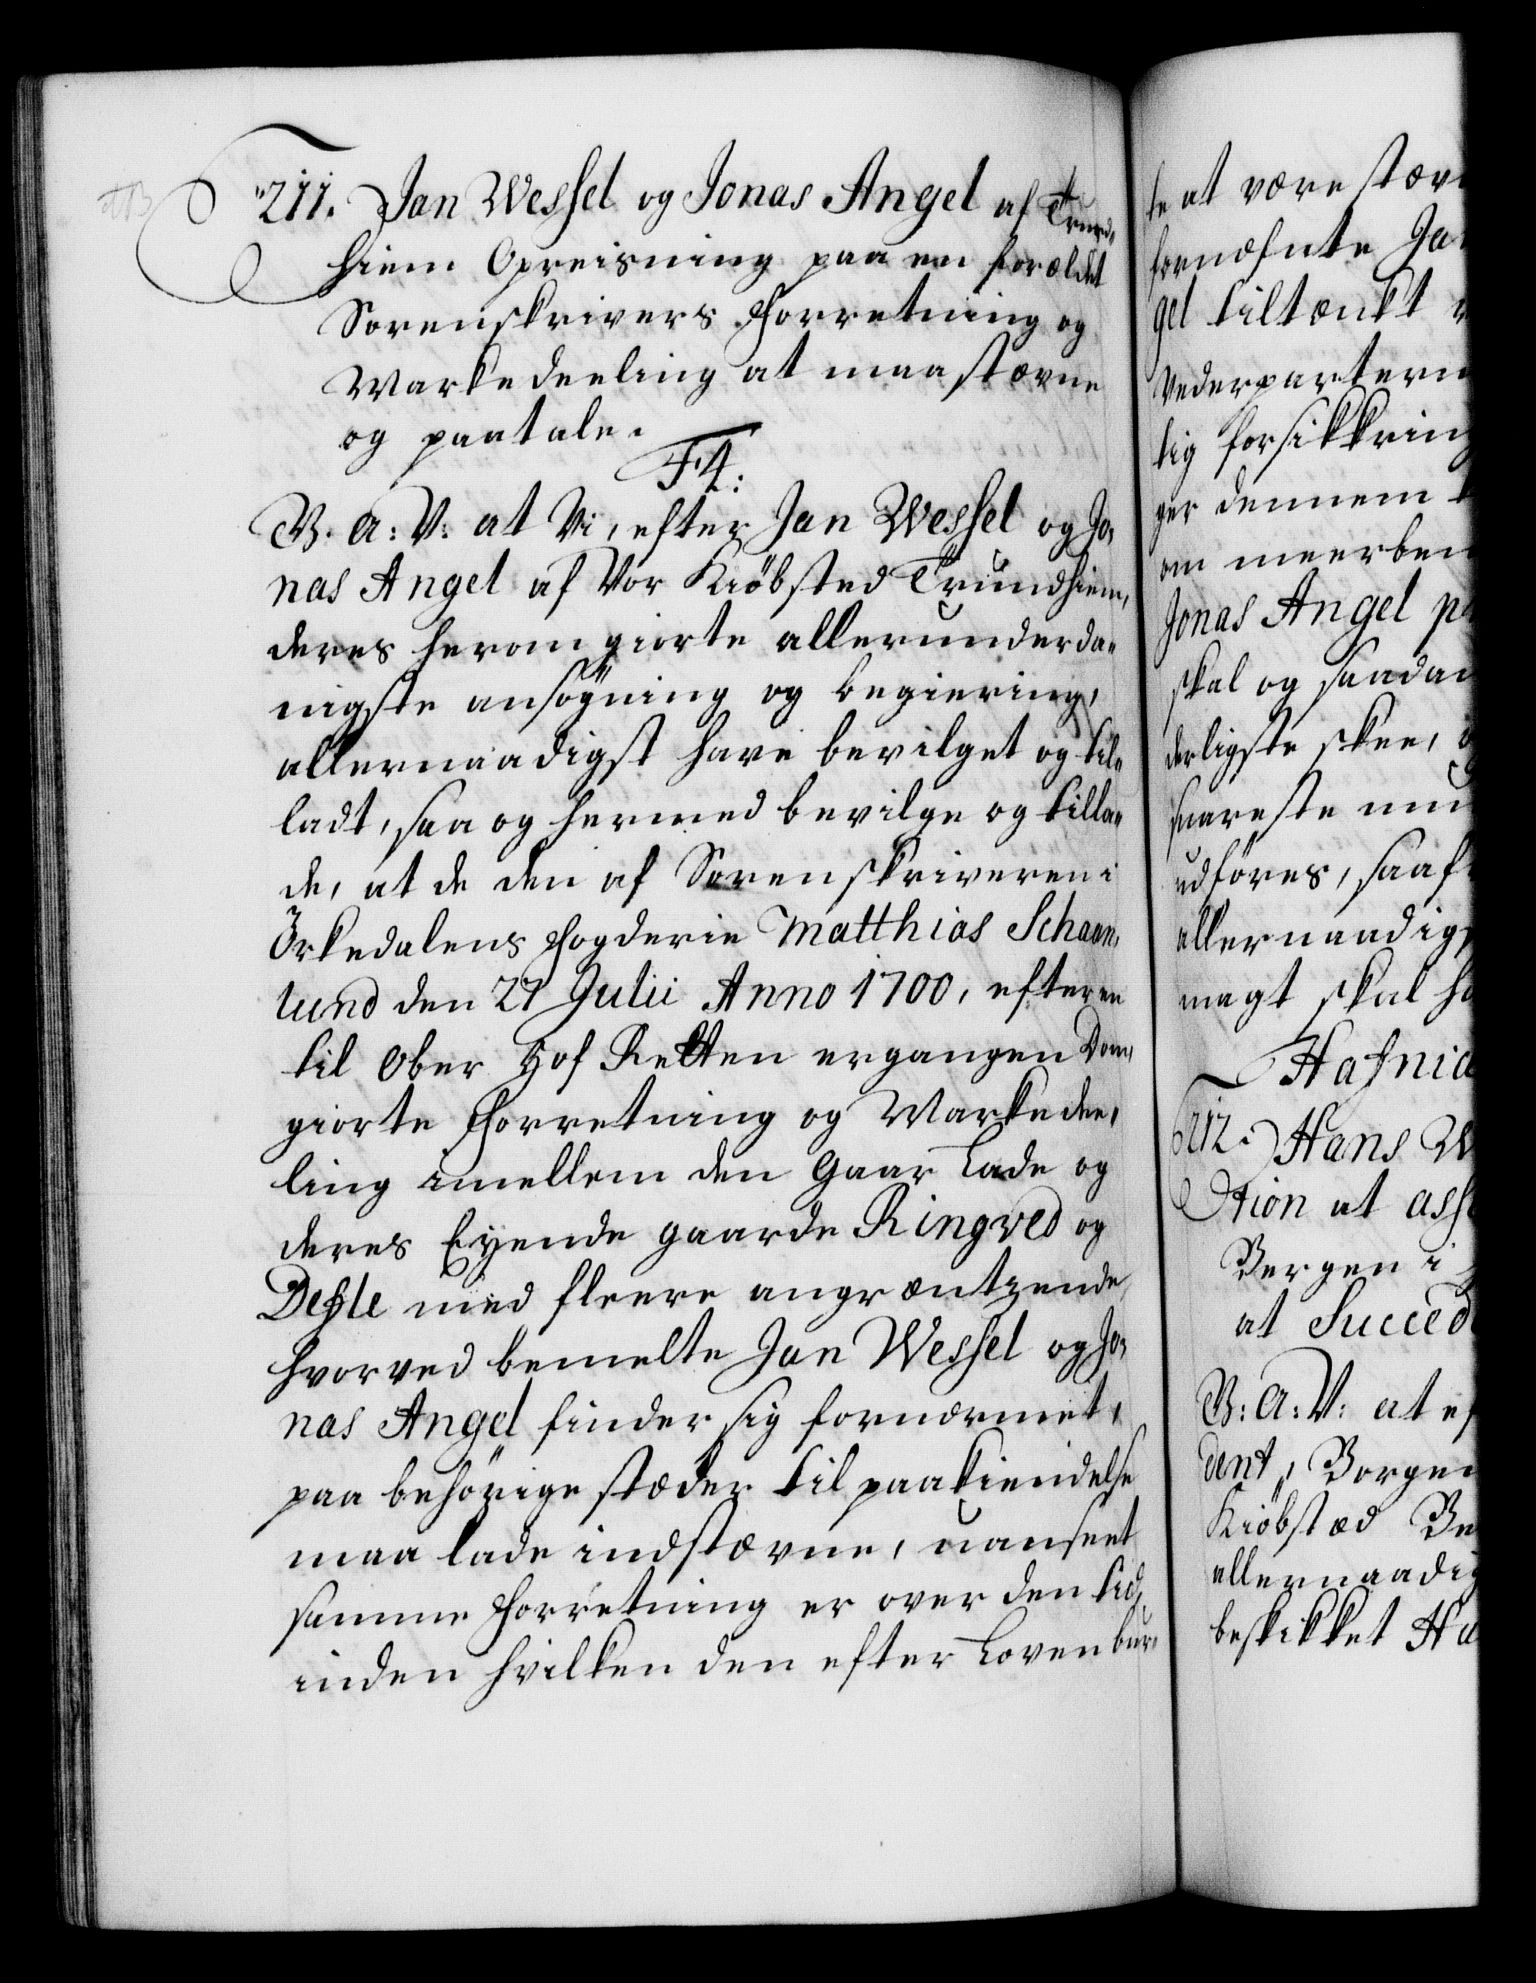 211. Jan Wessel og Jonas Angel af Trund-
hiem Opreisning paa en forældet
Sorenskrivers Forretning og
Markedeeling at maa stævne
og paatale.
F4:
V. A: V: at Vi, efter Jan Wessel og Jo-
nas Angel af Vor Kiöbsted Trundhiem,
deres herom giorte allerunderda-
nigste ansögning og begiering,
allernaadigst have bevilget og til-
ladt, saa og hermed bevilge og tilla-
de, at de den af Sorenskriveren i
Örkedalens Fogderie Matthias Schaan-
lund den 27 Julii Anno 1700, efter en
til Ober Hof Retten ergangen Dom,
giorte Forretning og Markedee-
ling imellem den Gaar Lade og
deres Eyende gaarde Ringved og
Defle med fleere angræntzende,
hvorved bemelte Jan Wessel og Jo-
nas Angel finder sig fornærmet,
paa behörige stæder til paakiendelse
maa lade indstævne, uanseet
samme Forretning er over den tid,
inden hvilken den efter Loven bur-
te at være stæv
fornæfnte Ja
gel tiltænkt
Vederpartern
tig forsikkring
ger dennem
om meerben
Jonas Angel p
skal og saadan
derligste skee,
snareste mu
udföres, saaf
allernaadigs
magt skal ha
Hafniæ
212. Hans W
tion at asse
Bergen i
at Succed
V: A: V: at ef
dent, Borge
Kiöbstæd Be
allernaadig
beskikket Ha